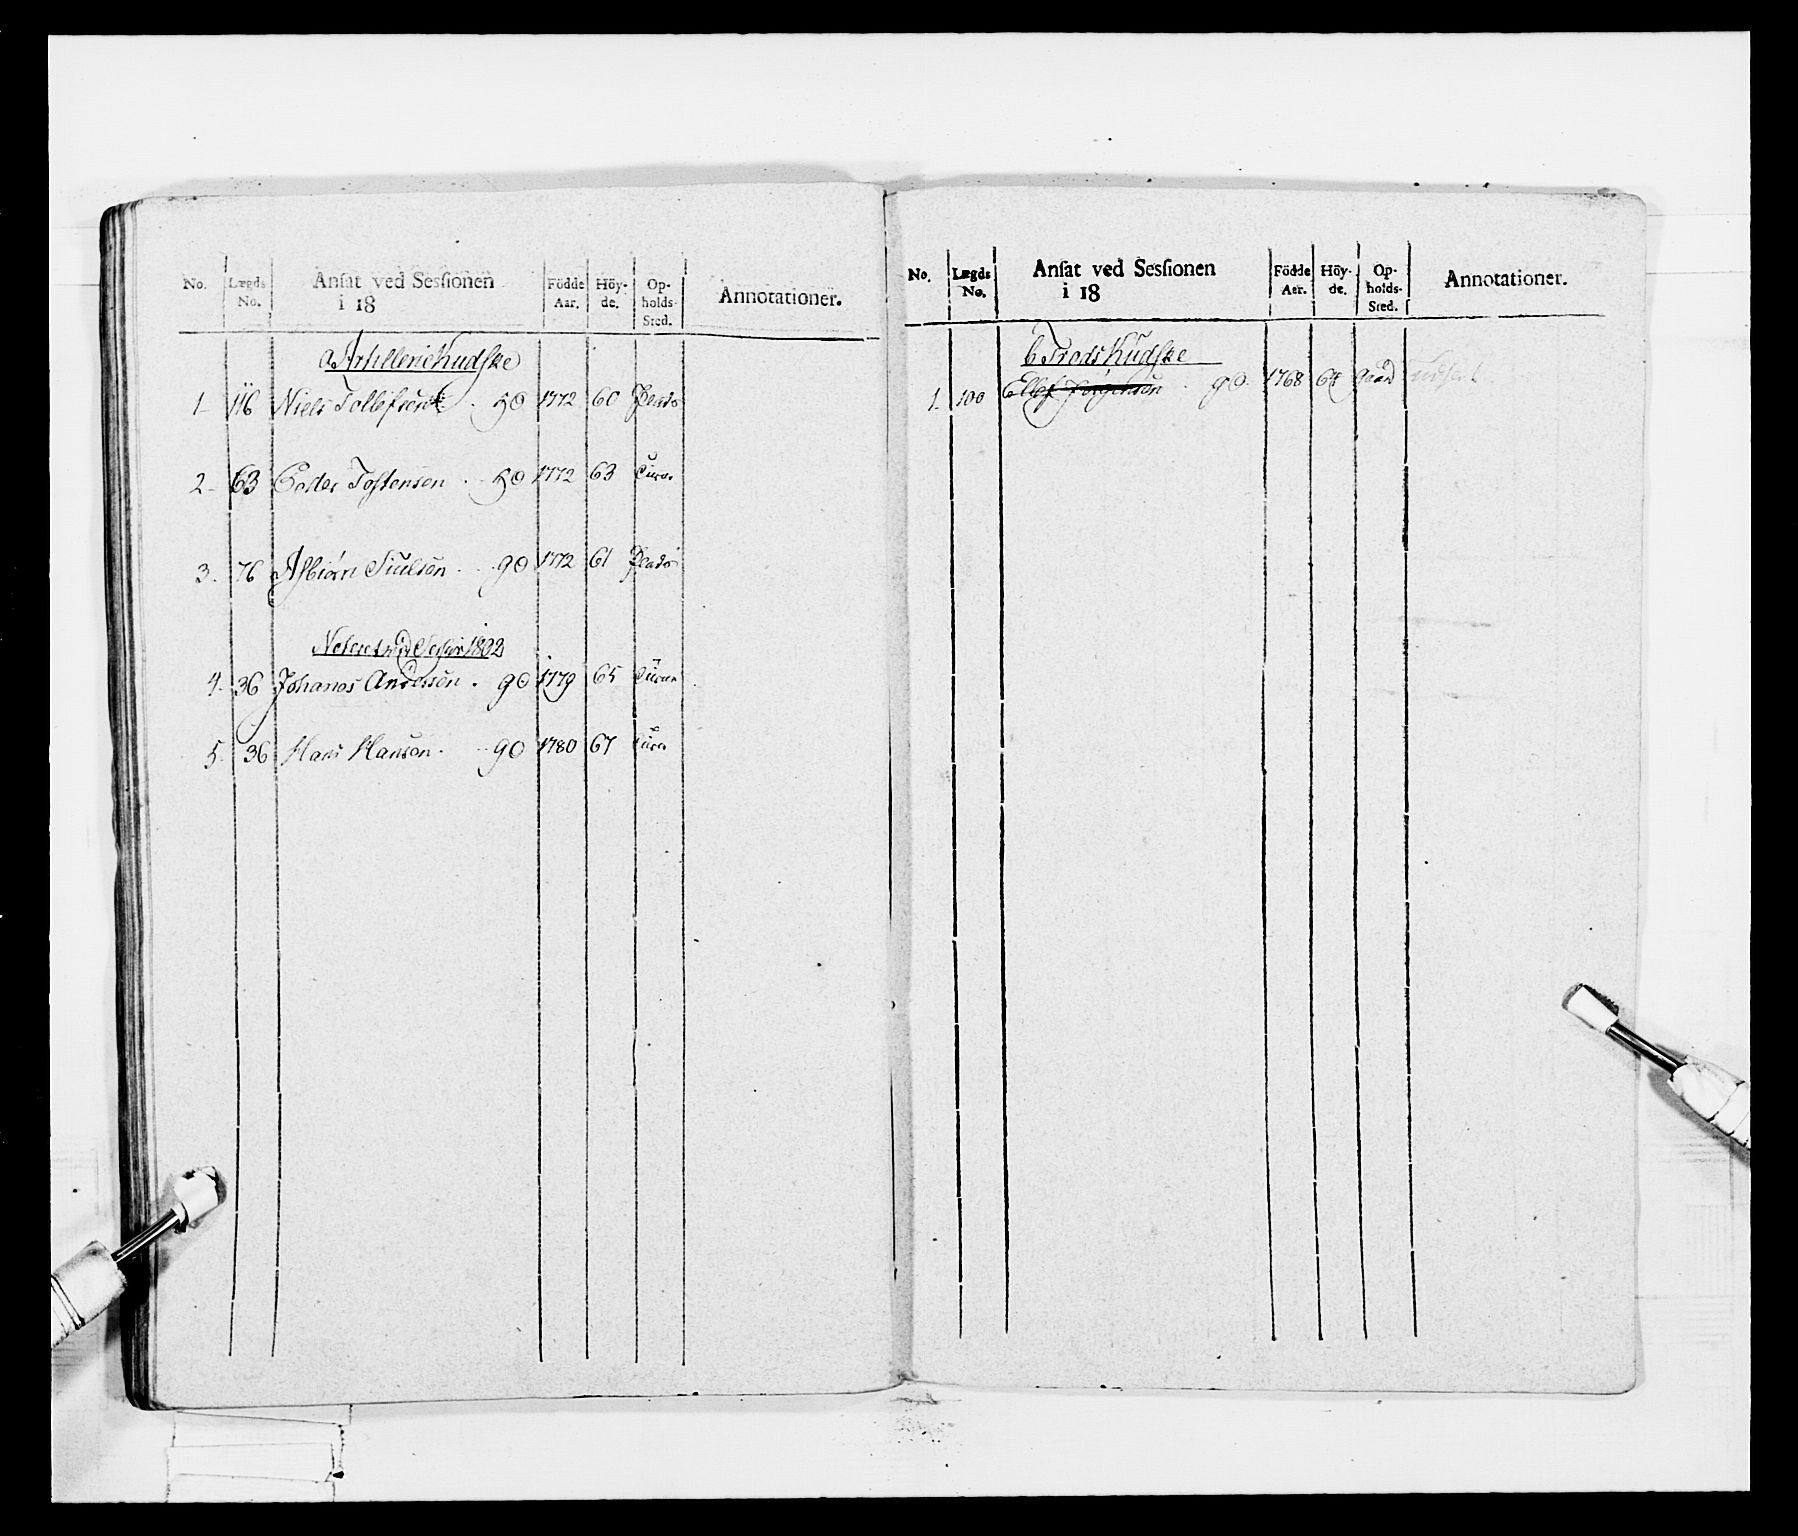 No. Lægds No. Ansat ved Sessionen i 18 Födde Aar. Höyde. Opholds-Sted. Annotationer.
a Artillerie Kudske
1 116 Niels Tollefsen 50 1772 60
2 63 Peder Tostensen 50 1772 63
3. 76 Asbiørn 90 1772 61
Noteret ved Session 1802
4. 36 Johanes Andersen 90 1779 65
5. 36 Hans Hansen 90 1780 67
No. Lægds No. Ansat ved Sessionen i 18 Födde Aar. Höy-de. Op-holds-Sted. Annotationer.
b Trods Kudske
1. 100 Ellef Jörgensen 90 1768 64 Gaard